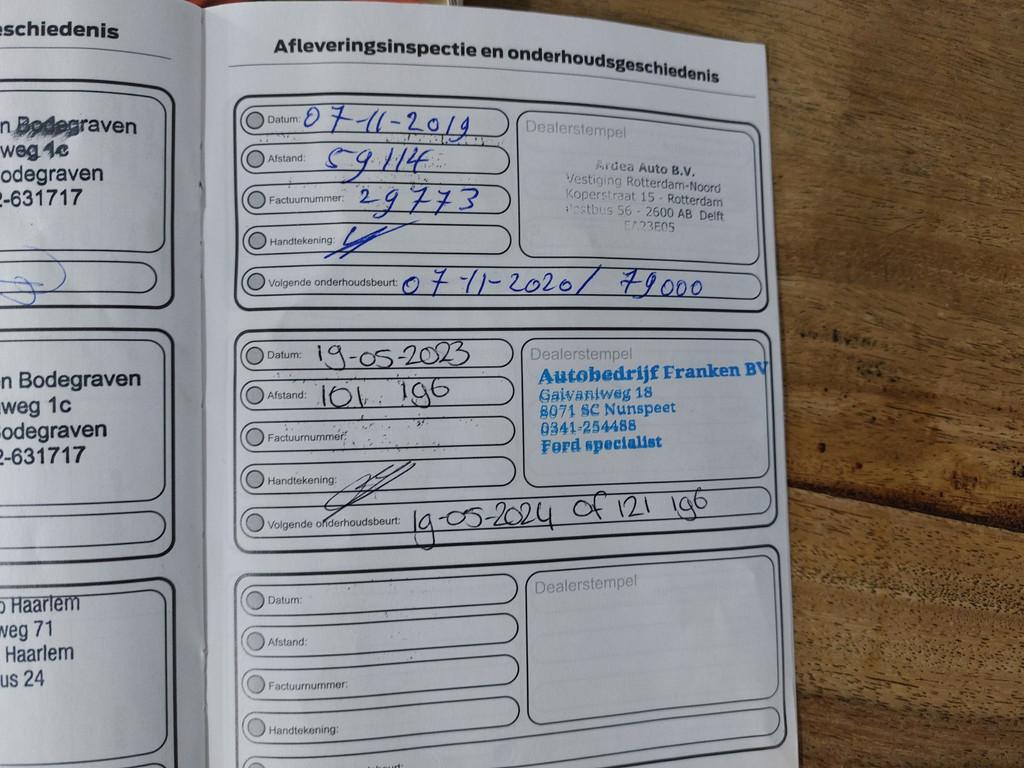 schiedenis
n Bodegraven
weg 1c
odegraven
2-631717
n Bodegraven
weg 1c
odegraven
2-631717
o Haarlem
weg 71
Haarlem
us 24
Afleveringsinspectie en onderhoudsgeschiedenis
Datum: 07-11-2019
Afstand: 59114
Factuurnummer: 29773
Handtekening:
Volgende onderhoudsbeurt: 07-11-2020/ 79000
Dealerstempel
Ardea Auto B.V.
Vestiging Rotterdam-Noord
Koperstraat 15 - Rotterdam
Postbus 56 - 2600 AB Delft
EA23E05
Datum: 19-05-2023
Afstand: 101 196
Factuurnummer:
Handtekening:
Volgende onderhoudsbeurt: 19-05-2024 of 121 196
Dealerstempel
Autobedrijf Franken BV
Galvaniweg 18
8071 SC Nunspeet
0341-254488
Ford specialist
Datum:
Afstand:
Factuurnummer:
Handtekening:
Dealerstempel